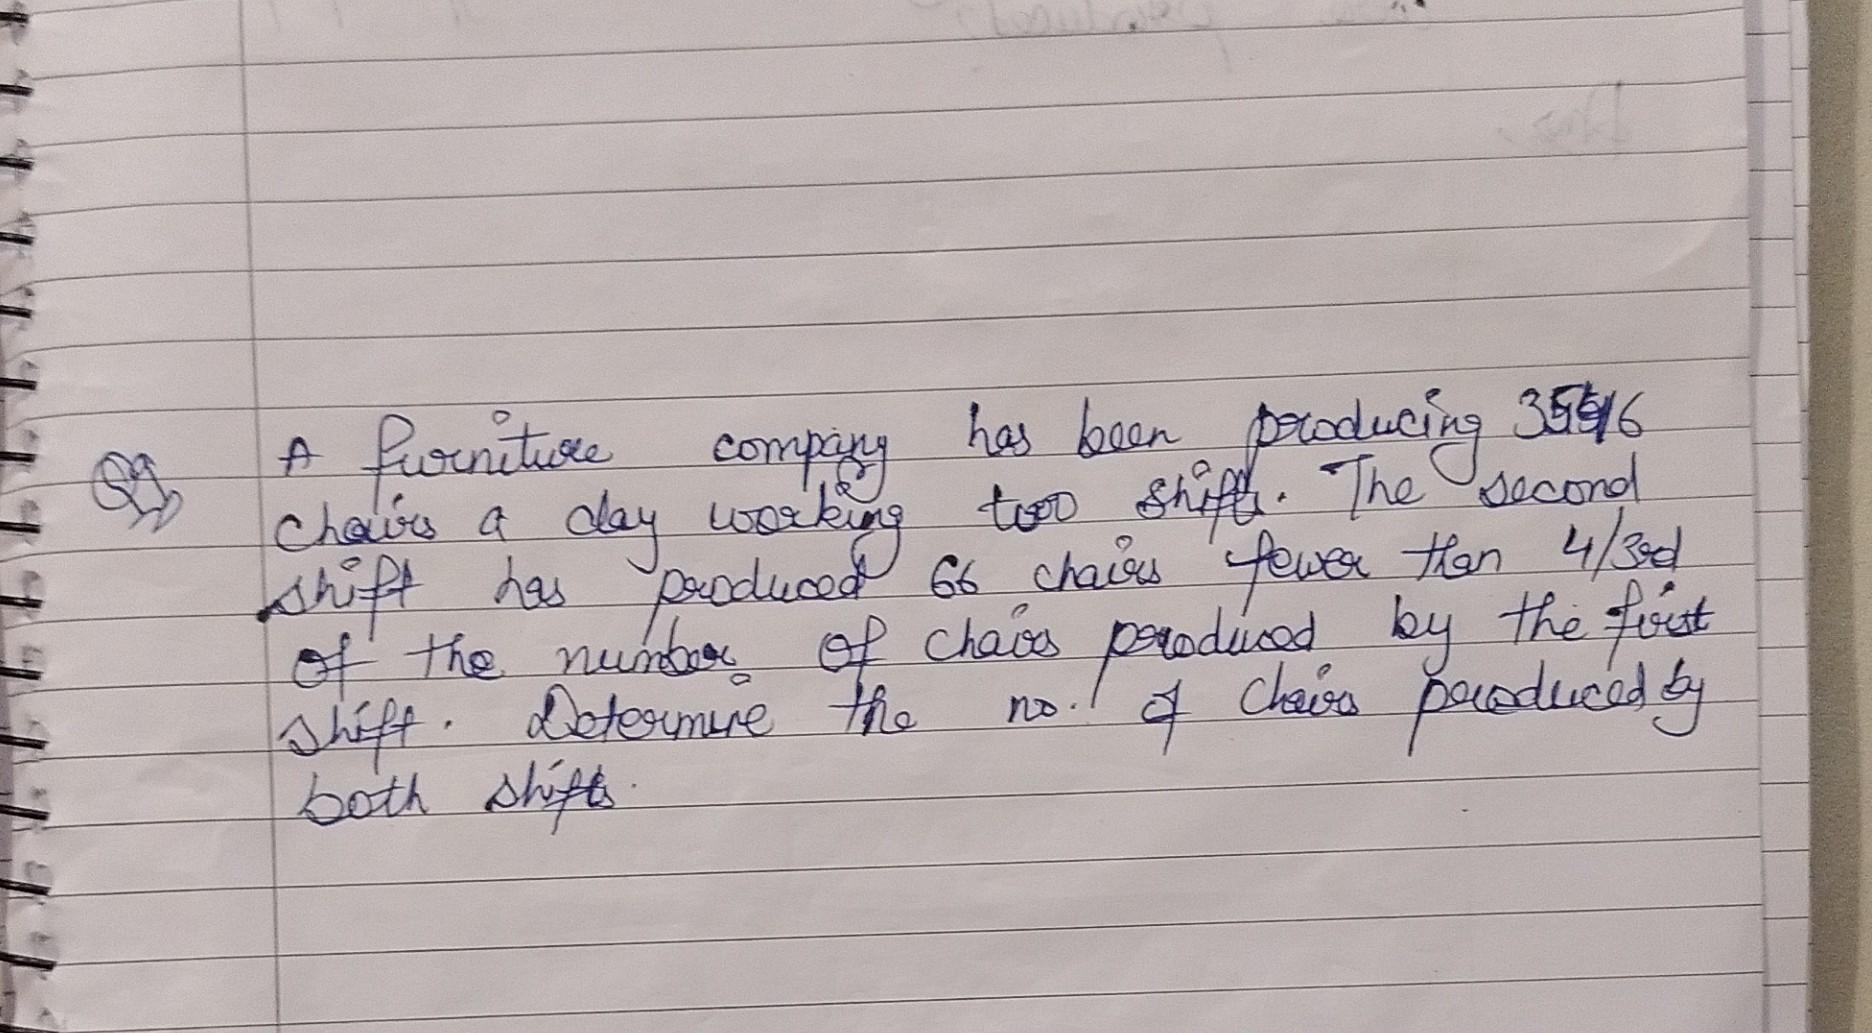 Q9) A furniture company has been producing
chairs a day working two shifts. The second
shift has produced 66 chairs fewer than 4/3rd
of the number of chairs produced by the first
shift. Determine the no. of chairs produced by
both shifts.